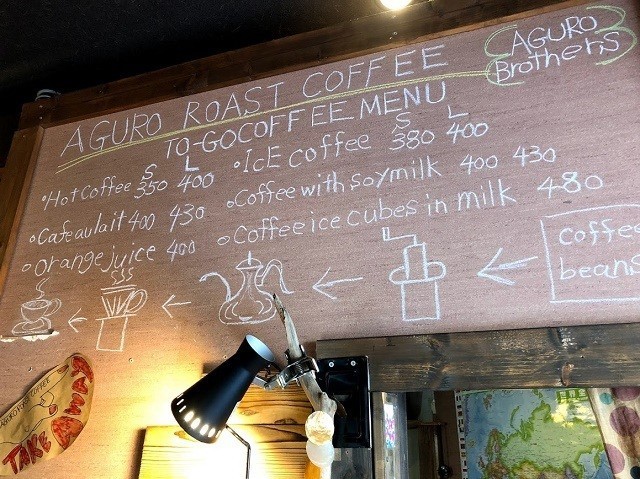 AGURO Brothers
AGURO ROAST COFFEE
TO-GO COFFEE MENU
S L
Hot Coffee 350 400
Cafe au lait 400 430
Orange juice 400
S L
Ice coffee 380 400
Coffee with soymilk 400 430
Coffee ice cubes in milk 480
Coffee
beans
TAKE